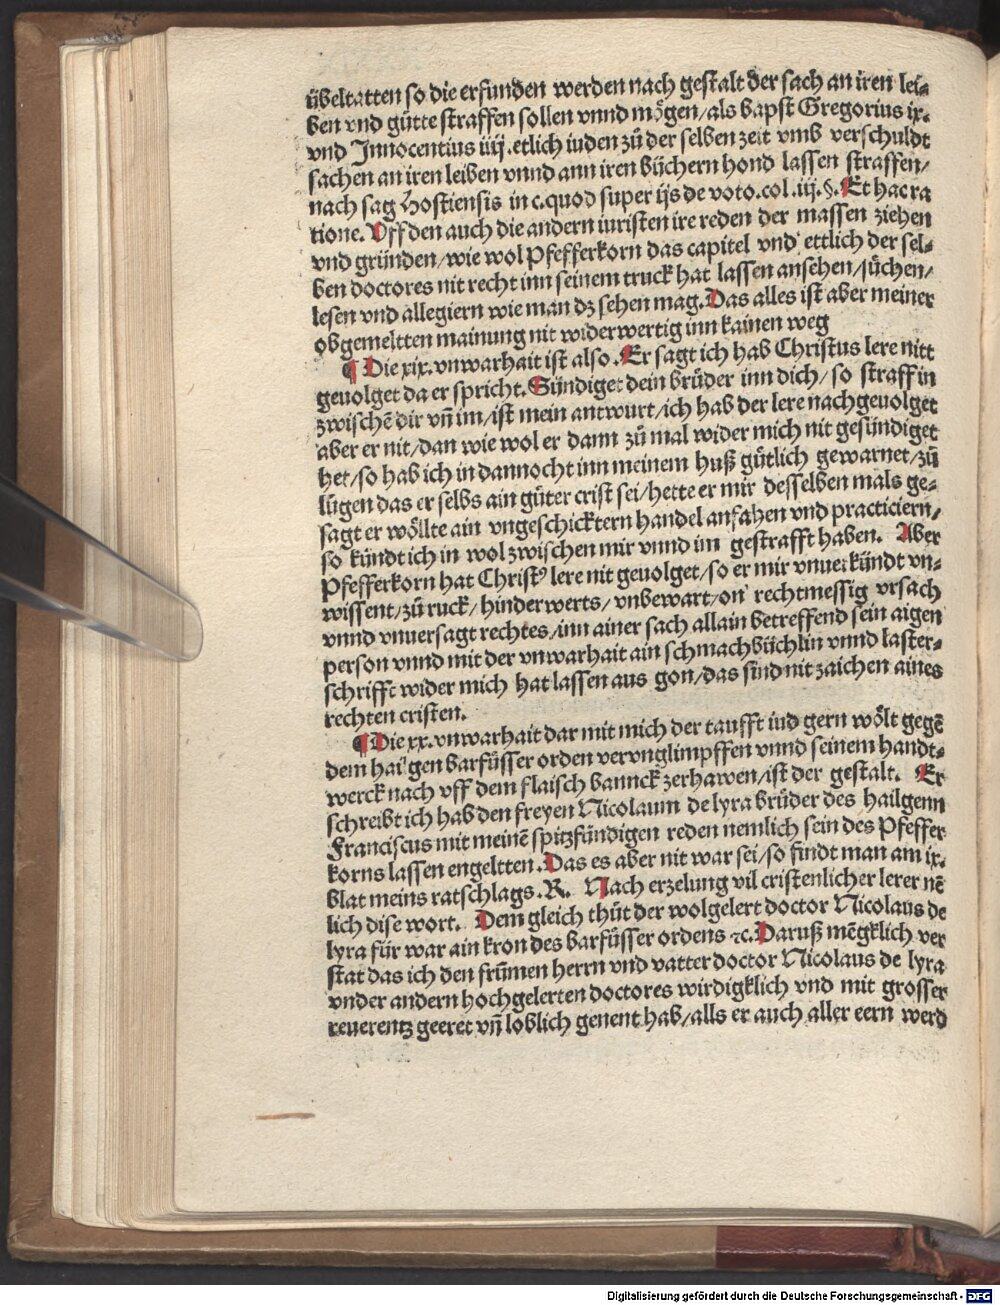 übeltatten so die erfunden werden nach gestalt der sach an iren lei⸗
ben vnd gütte straffen sollen vnnd mögen/als bapst Gregorius ix.
vnd Innocentius iiij.etlich iuden zů der selben zeit vmb verschuldt
sachen an iren leiben vnnd ann iren büchern hond lassen straffen/
nach sag Hostiensis in c.quod super ijs de voto.col.iij.§.Et hac ra
tione. Vff den auch die andern iuristen ire reden der massen ziehen
vnd gründen/wie wol Pfefferkorn das capitel vnd ettlich der sel⸗
ben doctores nit recht inn seinem truck hat lassen ansehen/süchen/
lesen vnd allegiern wie man dz sehen mag.Das alles ist aber meiner
obgemeltten mainung nit widerwertig inn kainen weg
¶ Die xix.vnwarhait ist also.Er sagt ich hab Christus lere nitt
geuolget da er spricht.Sündiget dein brůder inn dich/so straff in
zwischē dir vñ im/ist mein antwurt/ich hab der lere nachgeuolget
aber er nit/dan wie wol er dann zů mal wider mich nit gesündiget
het/so hab ich in dannocht inn meinem huß gůtlich gewarnet/zů
lůgen das er selbs ain gůter crist sei/hette er mir desselben mals ge⸗
sagt er wöllte ain vngeschicktern handel anfahen vnd practiciern/
so kündt ich in wol zwischen mir vnnd im gestrafft haben. Aber
Pfefferkorn hat Christꝰ lere nit geuolget/so er mir vnuerkündt vn⸗
wissent/zů ruck/hinderwerts/vnbewart/on rechtmessig vrsach
vnnd vnuersagt rechtes/inn ainer sach allain betreffend sein aigen
person vnnd mit der vnwarhait ain schmachbüchlin vnnd laster⸗
schrifft wider mich hat lassen aus gon/das sind nit zaichen aines
rechten cristen.
¶ Die xx.vnwarhait dar mit mich der taufft iud gern wölt gegē
dem hailgen barfüsser orden verunglimpffen vnnd seinem handt⸗
werck nach vff dem flaisch banнck zerhawen/ist der gestalt. Er
schreibt ich hab den freyen Nicolaum de lyra brůder des hailgenn
Franciscus mit meinē spitzfündigen reden nemlich sein des Pfeffer
korns lassen engeltten.Das es aber nit war sei/so findt man am ix.
blat meins ratschlags.R. Nach erzelung vil cristenlicher lerer nē
lich dise wort. Dem gleich thůt der wolgelert doctor Nicolaus de
lyra für war ain kron des barfüsser ordens ⁊c.Daruß mēgklich ver
stat das ich den frům̄en herrn vnd vatter doctor Nicolaus de lyra
vnder andern hochgelerten doctores wirdigklich vnd mit grosser
reuerentz geeret vñ loblich genent hab/alls er auch aller eern werd
Digitalisierung gefördert durch die Deutsche Forschungsgemeinschaft - DFG